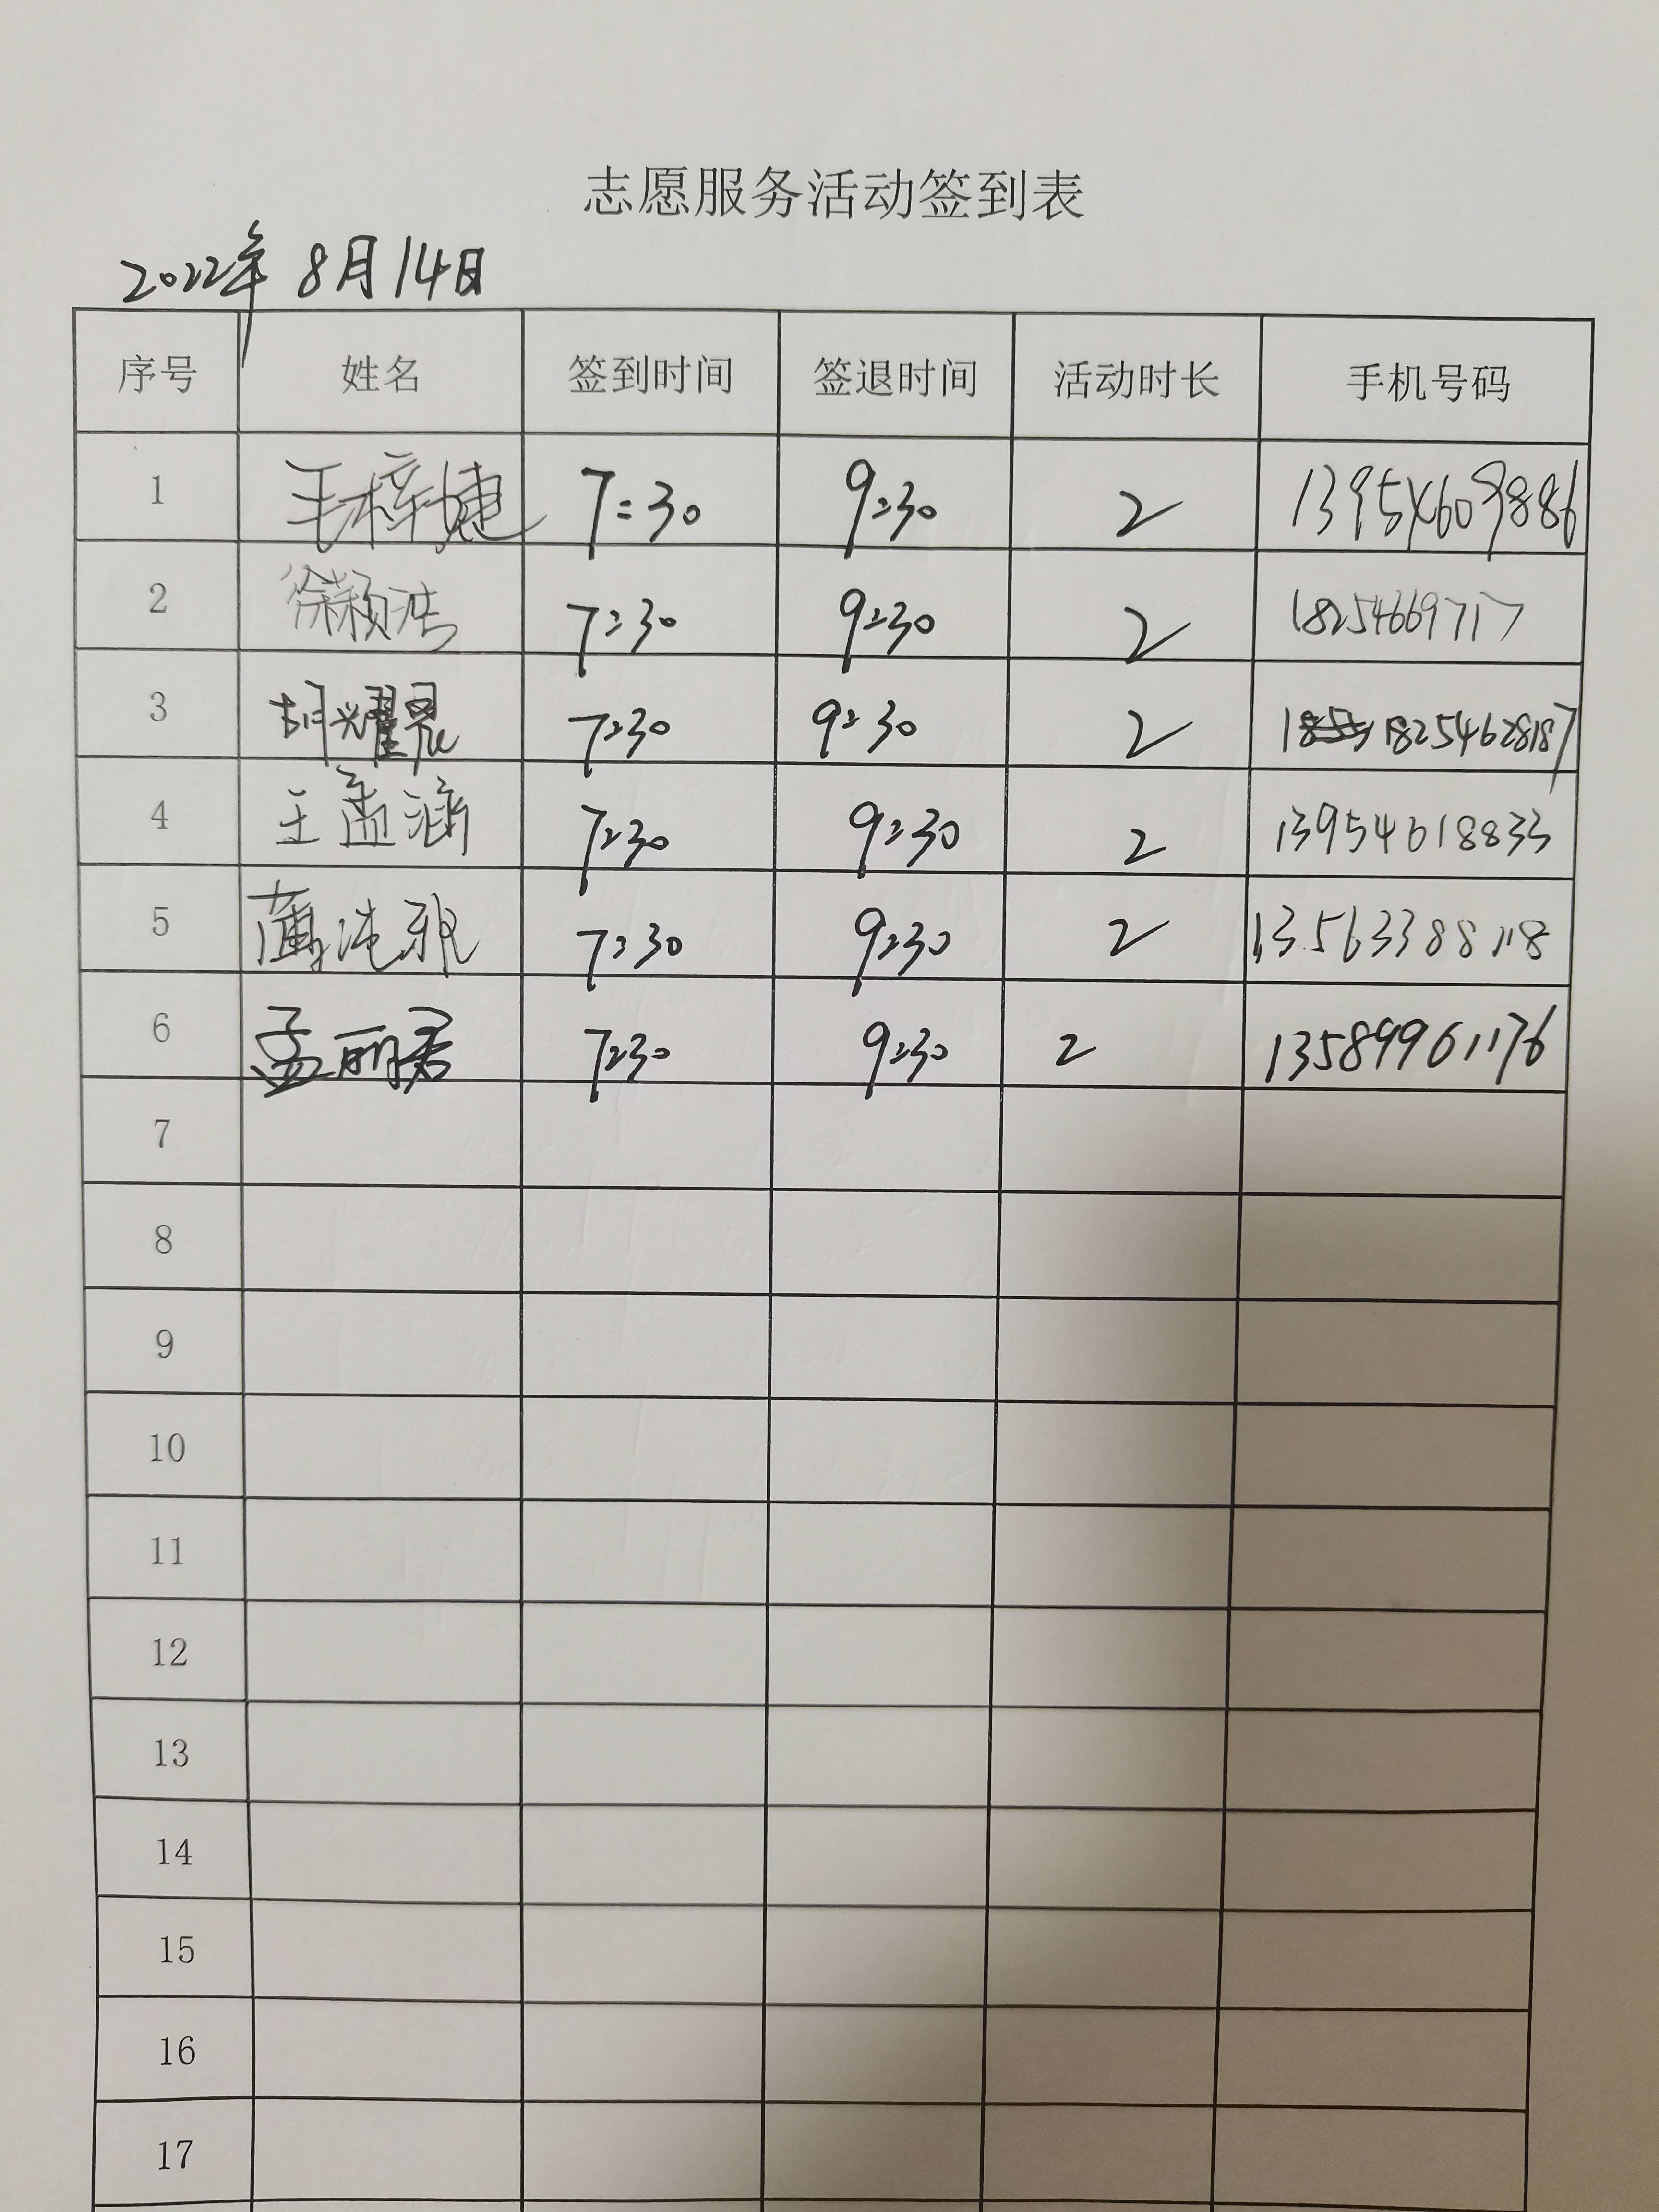 志愿服务活动签到表
2022年 8月14日
序号 姓名 签到时间 签退时间 活动时长 手机号码
1 毛梓婕 7:30 9:30 2
2 徐颖浩 7:30 9:30 2 18254669717
3 胡耀晨 7:30 9:30 2 18254628187
4 王孟涵 7:30 9:30 2 13954618833
5 7:30 9:30 2 13563388118
6 孟丽君 7:30 9:30 2 13589961176
7
8
9
10
11
12
13
14
15
16
17